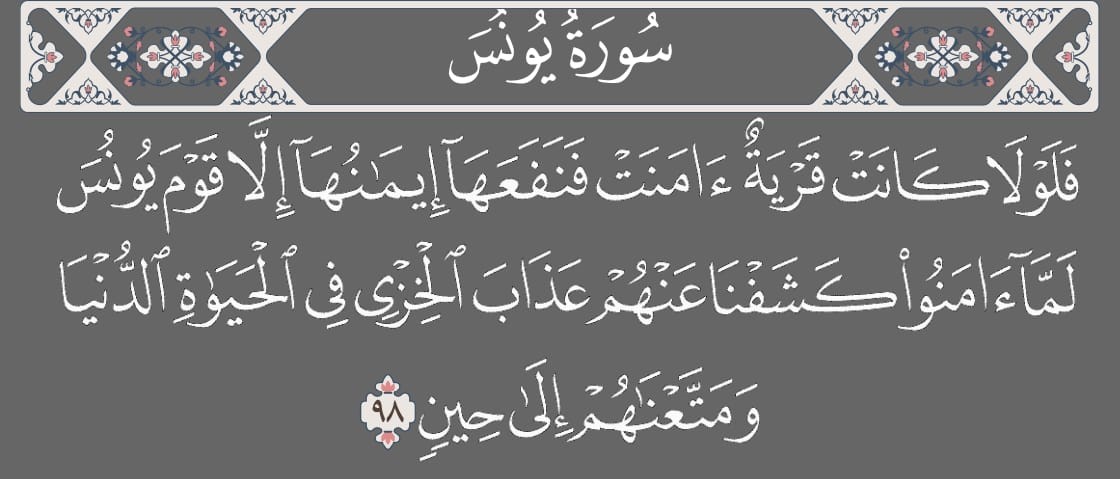 سُورَةُ يُونُسَ
فَلَوْلَا كَانَتْ قَرْيَةٌ ءَامَنَتْ فَنَفَعَهَآ إِيمَـٰنُهَآ إِلَّا قَوْمَ يُونُسَ
لَمَّآ ءَامَنُوا۟ كَشَفْنَا عَنْهُمْ عَذَابَ ٱلْخِزْىِ فِى ٱلْحَيَوٰةِ ٱلدُّنْيَا
وَمَتَّعْنَـٰهُمْ إِلَىٰ حِينٍ ٩٨